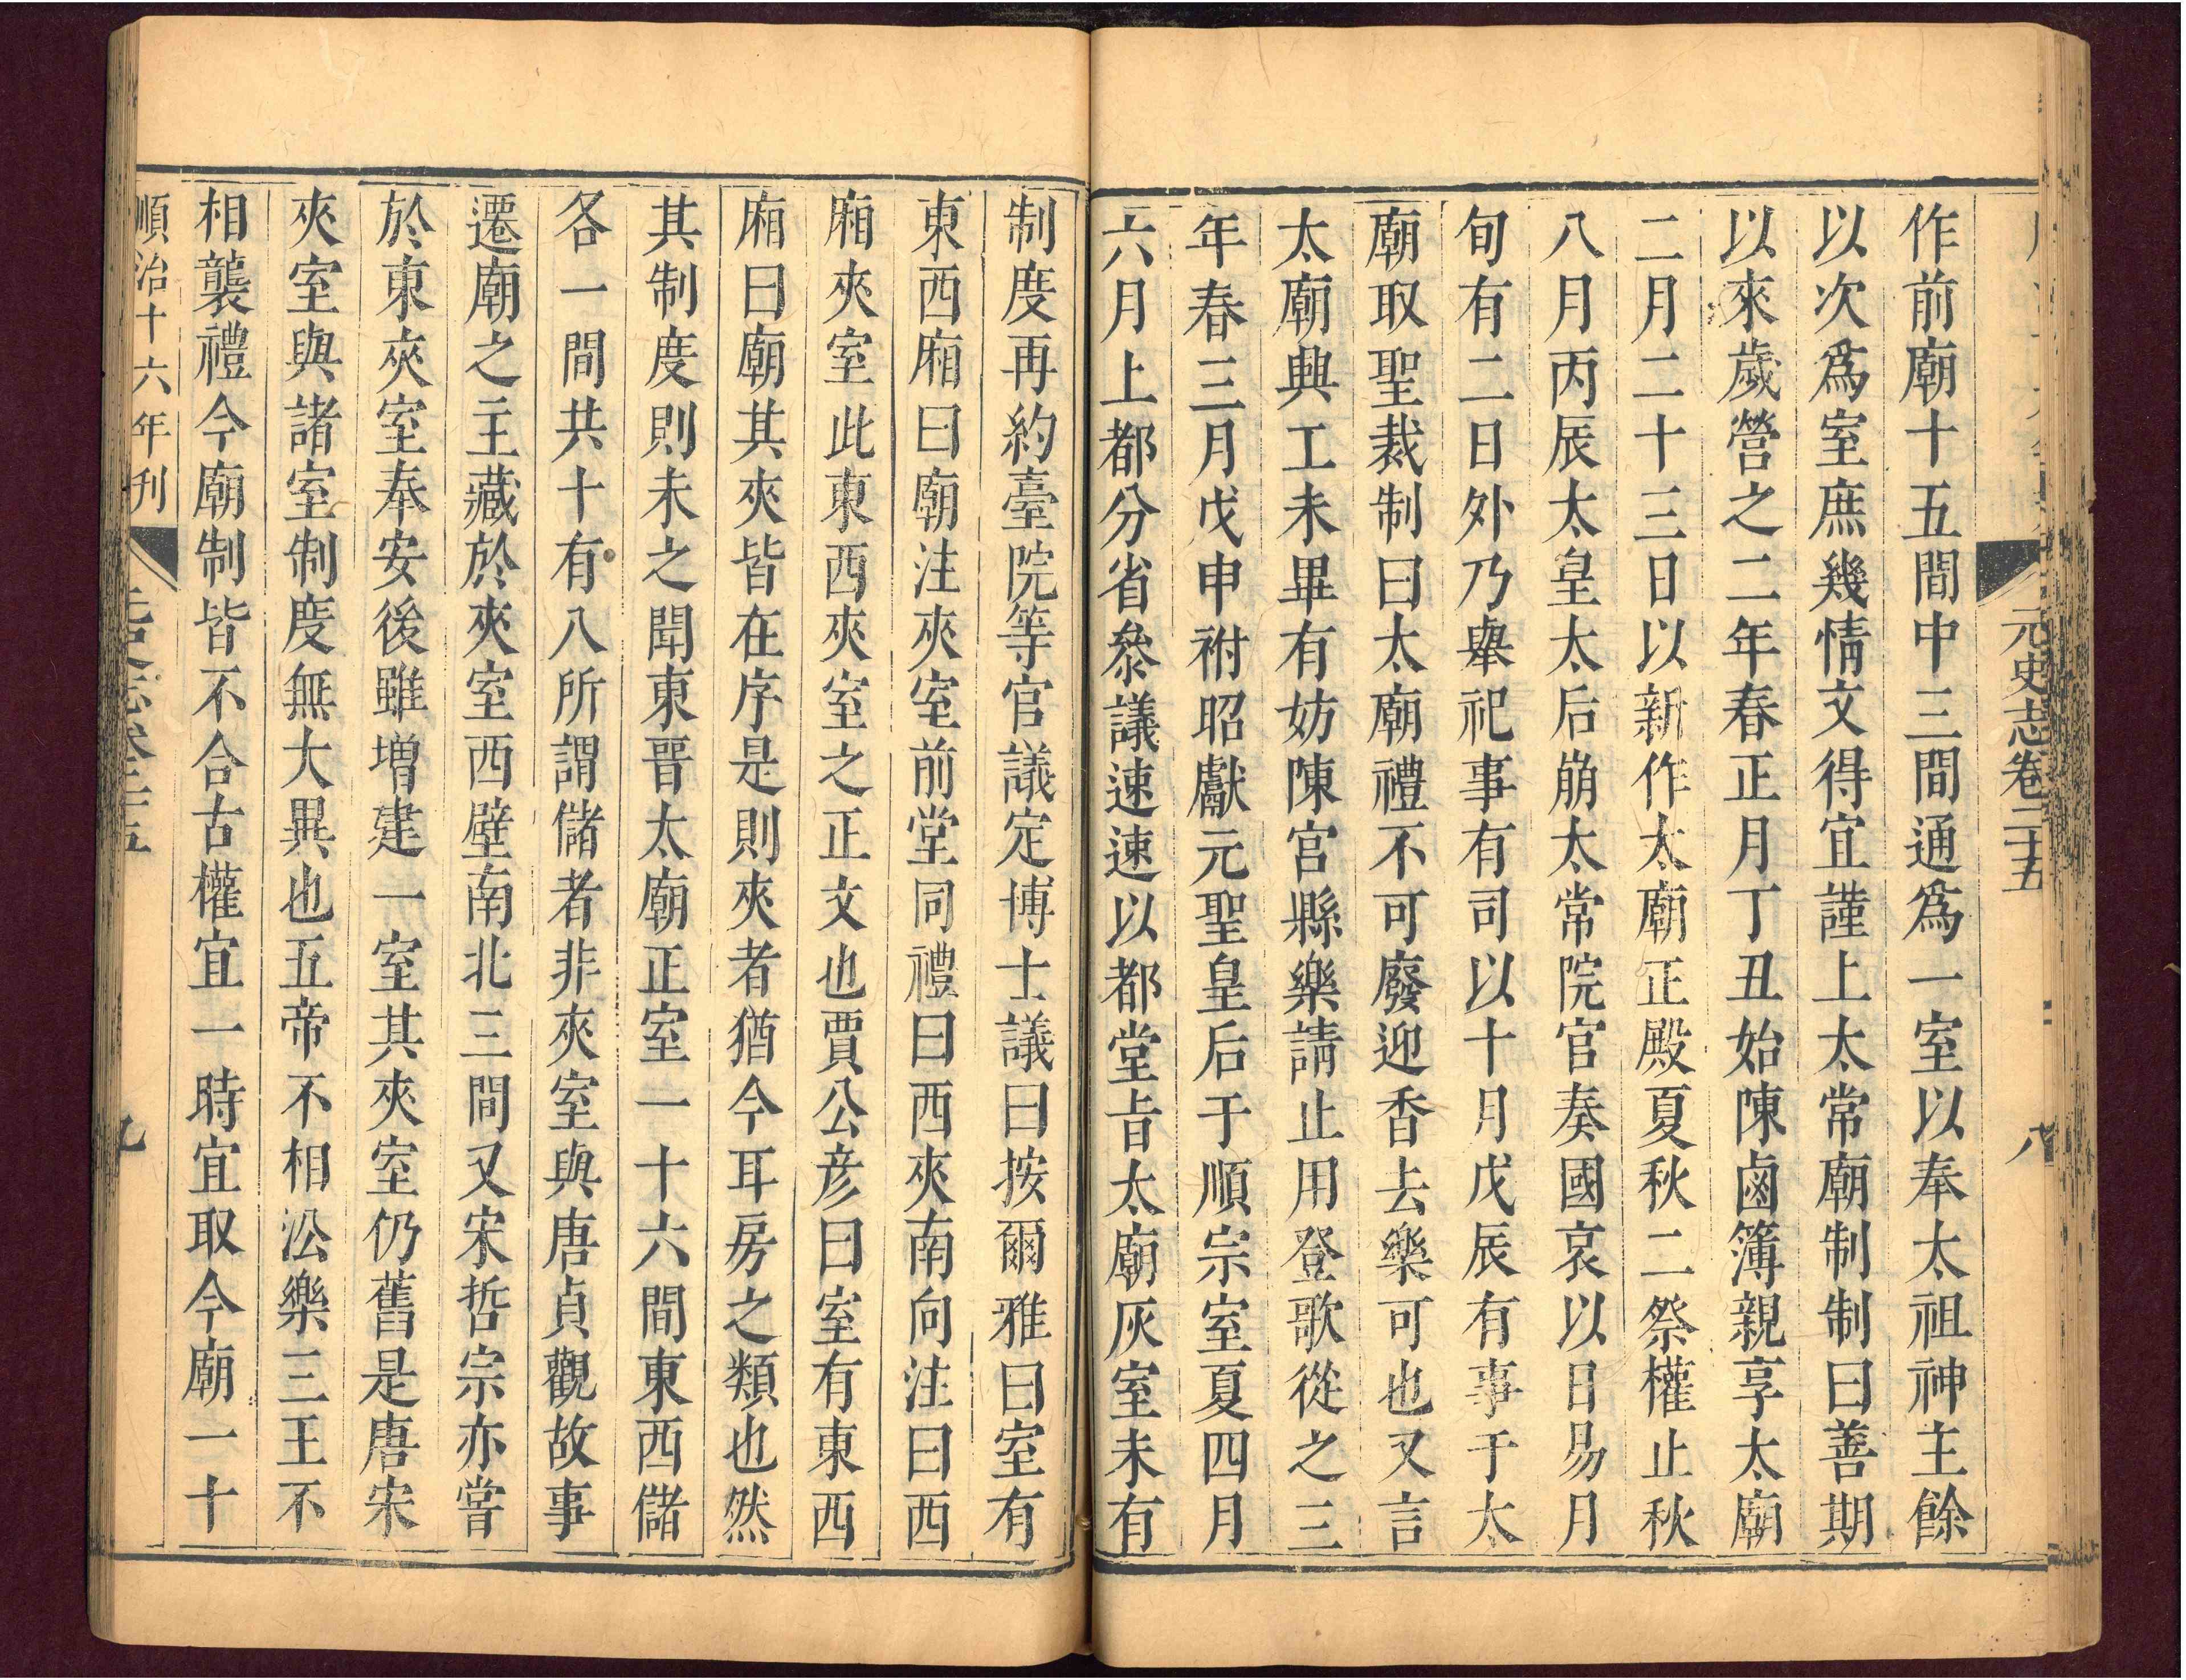 元史志卷二十五
八
作前廟十五間中三間通爲一室以奉太祖神主餘
以次爲室庶幾情文得宜謹上太常廟制制曰善期
以來歲營之二年春正月丁丑始陳鹵簿親享太廟
二月二十三日以新作太廟正殿夏秋二祭權止秋
八月丙辰太皇太后崩太常院官奏國哀以日易月
旬有二日外乃舉祀事有司以十月戊辰有事于太
廟取聖裁制曰太廟禮不可廢迎香去樂可也又言
太廟興工未畢有妨陳宮縣樂請止用登歌從之三
年春三月戊申祔昭獻元聖皇后于順宗室夏四月
六月上都分省叅議速速以都堂㫖太廟灰室未有
制度再約臺院等官議定博士議曰按爾雅曰室有
東西廂曰廟注夾室前堂同禮曰西夾南向注曰西
廂夾室此東西夾室之正文也賈公彦曰室有東西
廂曰廟其夾皆在序是則夾者猶今耳房之類也然
其制度則未之聞東晉太廟正室一十六間東西儲
各一間共十有八所謂儲者非夾室與唐貞觀故事
遷廟之主藏於夾室西壁南北三間又宋哲宗亦嘗
於東夾室奉安後雖增建一室其夾室仍舊是唐宋
夾室與諸室制度無大異也五帝不相㳂樂三王不
相襲禮今廟制皆不合古權宜一時宜取今廟一十
順治十六年刊
九